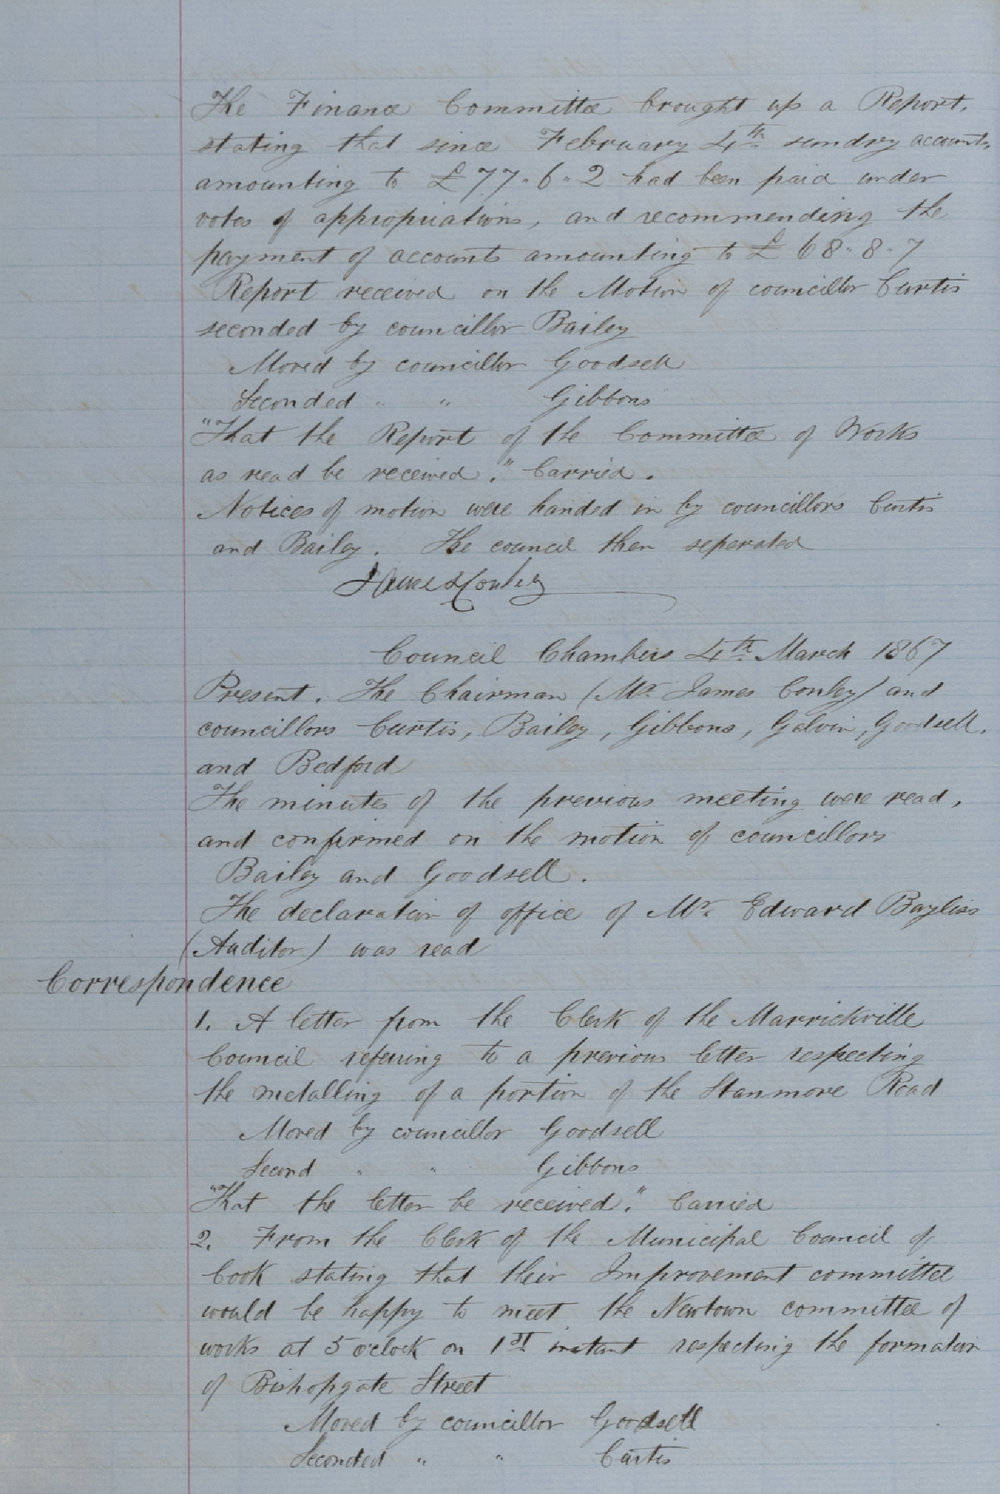 The Finance Committee brought up a Report,
stating that since February 4th sundry accounts
amounting to £77-6-2 had been paid under
votes of appropriations, and recommending the
payment of accounts amounting to £68-8-7
Report received on the Motion of councillor Curtis
seconded by councillor Bailey
Moved by councillor Goodsell
Seconded " " Gibbons
"That the Report of the Committee of Works
as read be received." Carried.
Notices of motion were handed in by councillors Curtis
and Bailey. The council then seperated
James Conley
Council Chambers 4th March 1867
Present. The Chairman (Mr. James Conley) and
councillors Curtis, Bailey, Gibbons, Galvin, Goodsell,
and Bedford
The minutes of the previous meeting were read,
and confirmed on the motion of councillors
Bailey and Goodsell.
The declaration of office of Mr. Edward Bayliss
(Auditor) was read
Correspondence
1. A letter from the Clerk of the Marrickville
Council refering to a previous letter respecting
the metalling of a portion of the Stanmore Road
Moved by councillor Goodsell
Second " " Gibbons
"That the letter be received." Carried
2. From the Clerk of the Municipal Council of
Cook stating that their Improvement committee
would be happy to meet the Newtown committee of
works at 5 o'clock on 1st instant respecting the formation
of Bishopgate Street
Moved by councillor Goodsell
Seconded " " Curtis